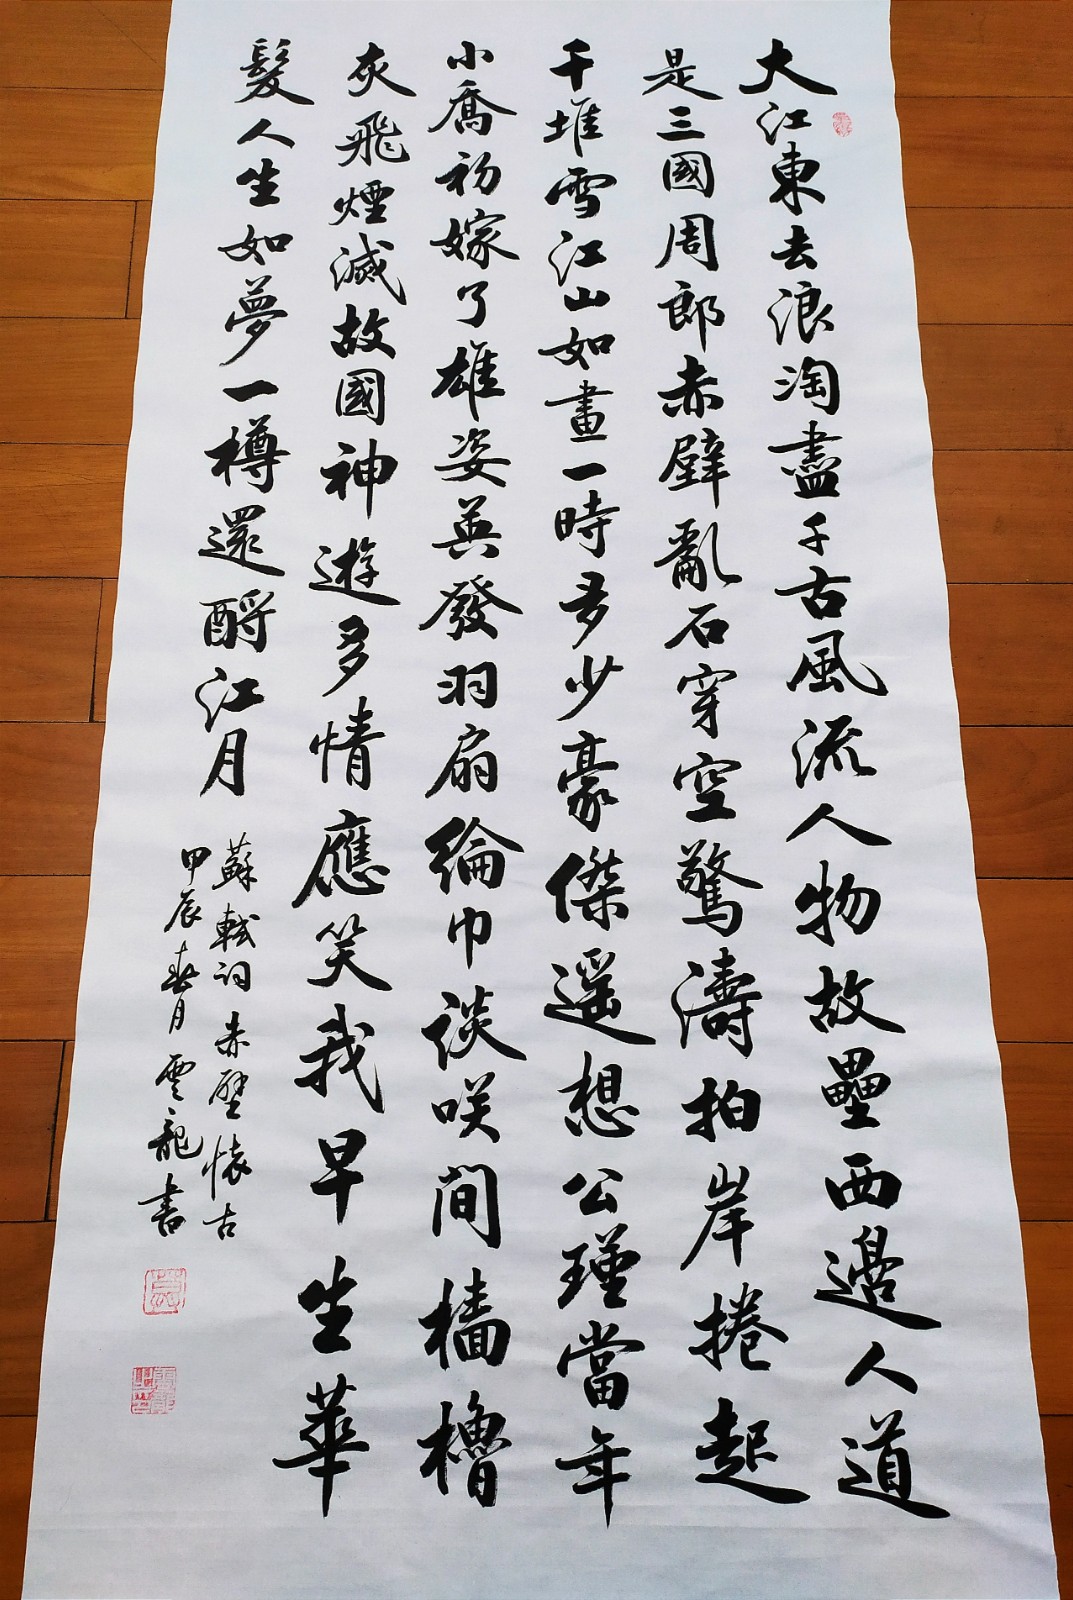 大江東去浪淘盡千古風流人物故壘西邊人道
是三國周郎赤壁亂石穿空驚濤拍岸捲起
千堆雪江山如畫一時多少豪傑遥想公瑾當年
小喬初嫁了雄姿英發羽扇綸巾談咲間檣櫓
灰飛煙滅故國神遊多情應笑我早生華
髮人生如夢一樽還酹江月
蘇軾詞赤壁懷古
甲辰春月雲龍書